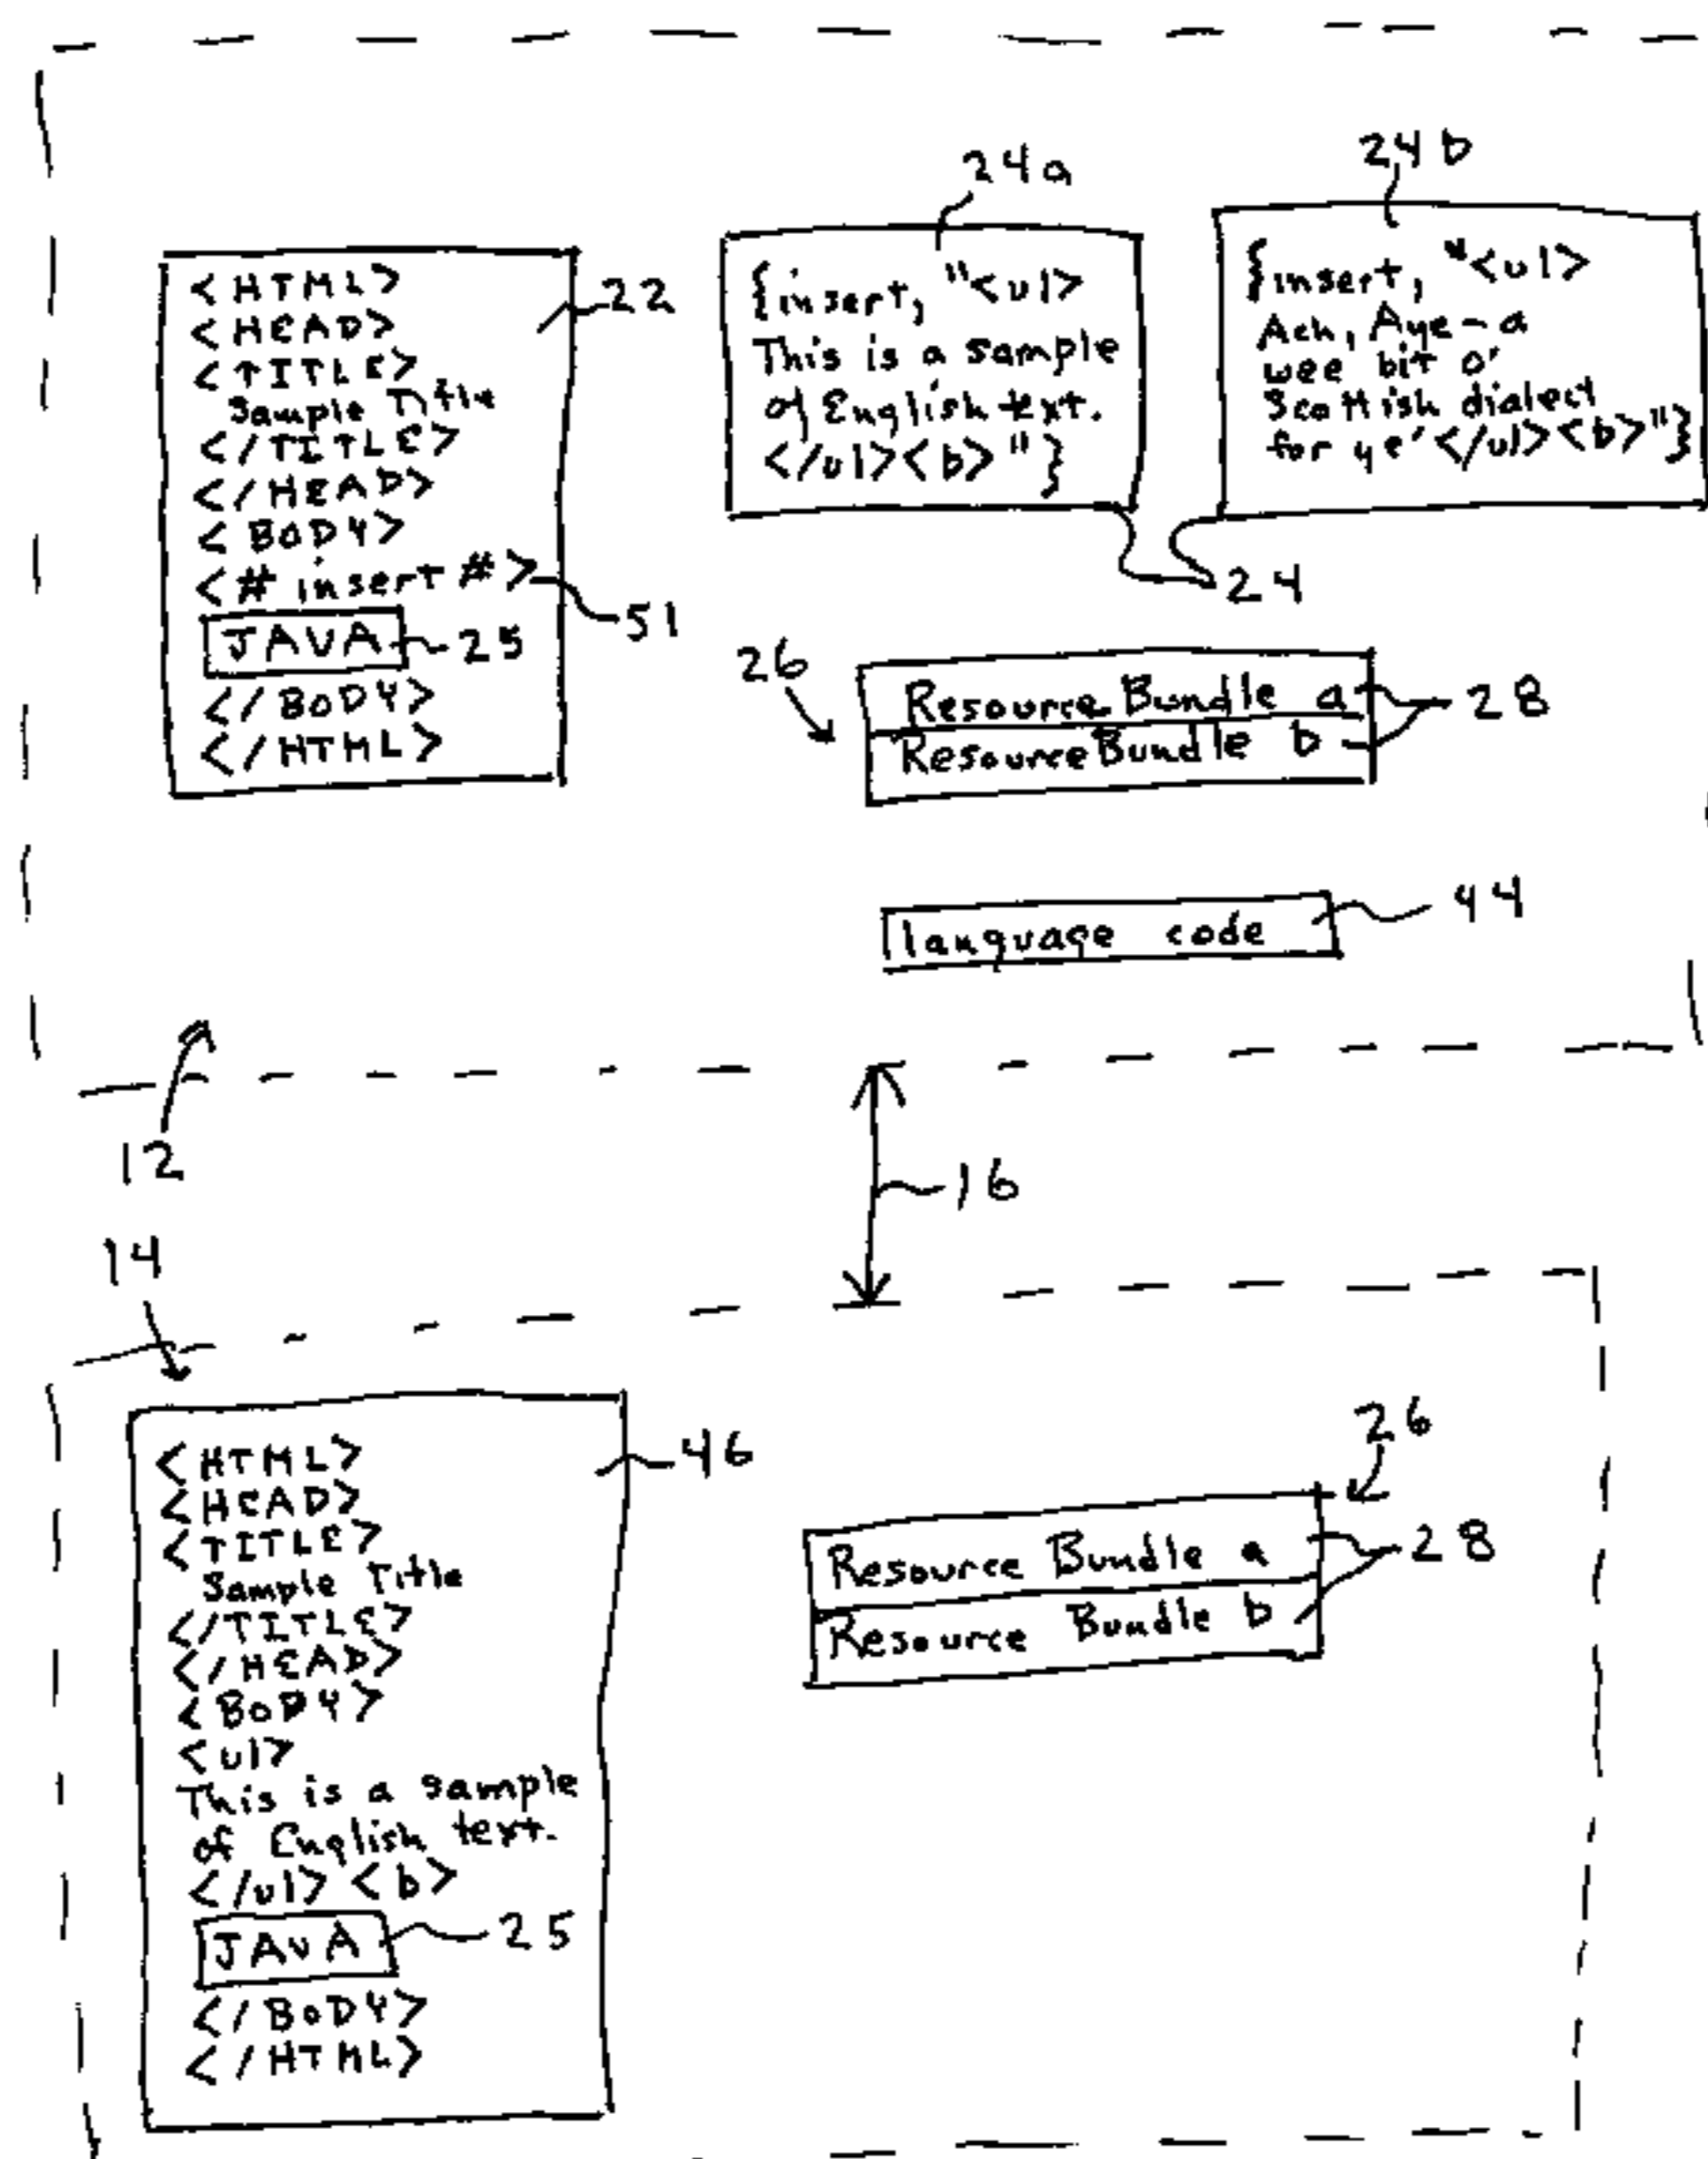 24a
24b
<HTML>
<HEAD>
<TITLE>
Sample Title
</TITLE>
</HEAD>
<BODY>
<# insert #>
JAVA
</BODY>
</HTML>
22
51
25
{insert, "<ul>
This is a sample
of English text.
</ul><b>"}
{insert, "<ul>
Ach, Aye-a
wee bit o'
Scottish dialect
for ye'</ul><b>"}
24
26
Resource Bundle a
Resource Bundle b
28
language code
44
12
16
14
<HTML>
<HEAD>
<TITLE>
Sample Title
</TITLE>
</HEAD>
<BODY>
<ul>
This is a sample
of English text.
</ul><b>
JAVA
</BODY>
</HTML>
46
25
26
Resource Bundle a
Resource Bundle b
28